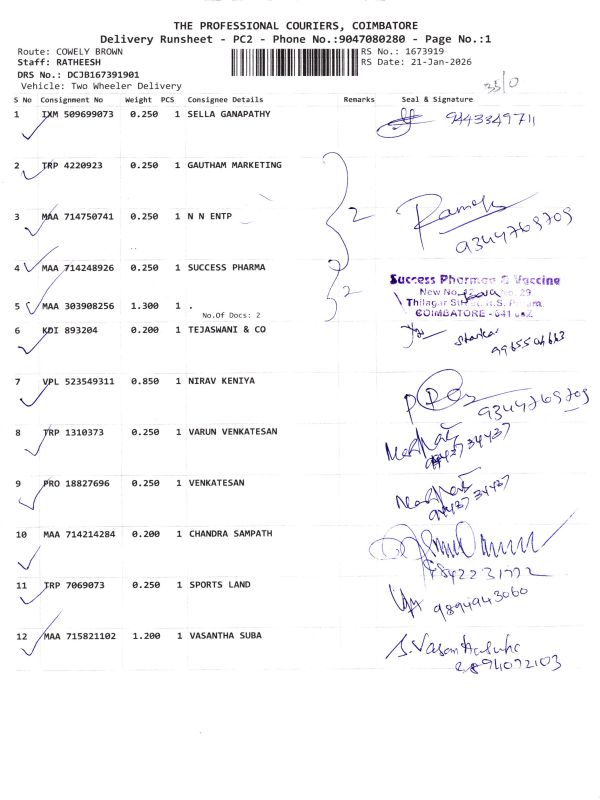 THE PROFESSIONAL COURIERS, COIMBATORE
Delivery Runsheet - PC2 - Phone No.:9047080280 - Page No.:1
Route: COWELY BROWN
RS No.: 1673919
Staff: RATHEESH
RS Date: 21-Jan-2026
DRS No.: DCJB167391901
Vehicle: Two Wheeler Delivery
S No Consignment No Weight PCS Consignee Details Remarks Seal & Signature
1 IXM 509699073 0.250 1 SELLA GANAPATHY 9443349711
2 TRP 4220923 0.250 1 GAUTHAM MARKETING
3 MAA 714750741 0.250 1 N N ENTP 2 Ramesh
9344769709
4 MAA 714248926 0.250 1 SUCCESS PHARMA
Success Pharma & Vaccine
5 MAA 303908256 1.300 1 . 2
No.Of Docs: 2
COIMBATORE - 641
6 KDI 893204 0.200 1 TEJASWANI & CO
7 VPL 523549311 0.850 1 NIRAV KENIYA
9344769709
8 TRP 1310373 0.250 1 VARUN VENKATESAN
9 PRO 18827696 0.250 1 VENKATESAN
10 MAA 714214284 0.200 1 CHANDRA SAMPATH
11 TRP 7069073 0.250 1 SPORTS LAND
9894943060
12 MAA 715821102 1.200 1 VASANTHA SUBA S. Vasanthasuba